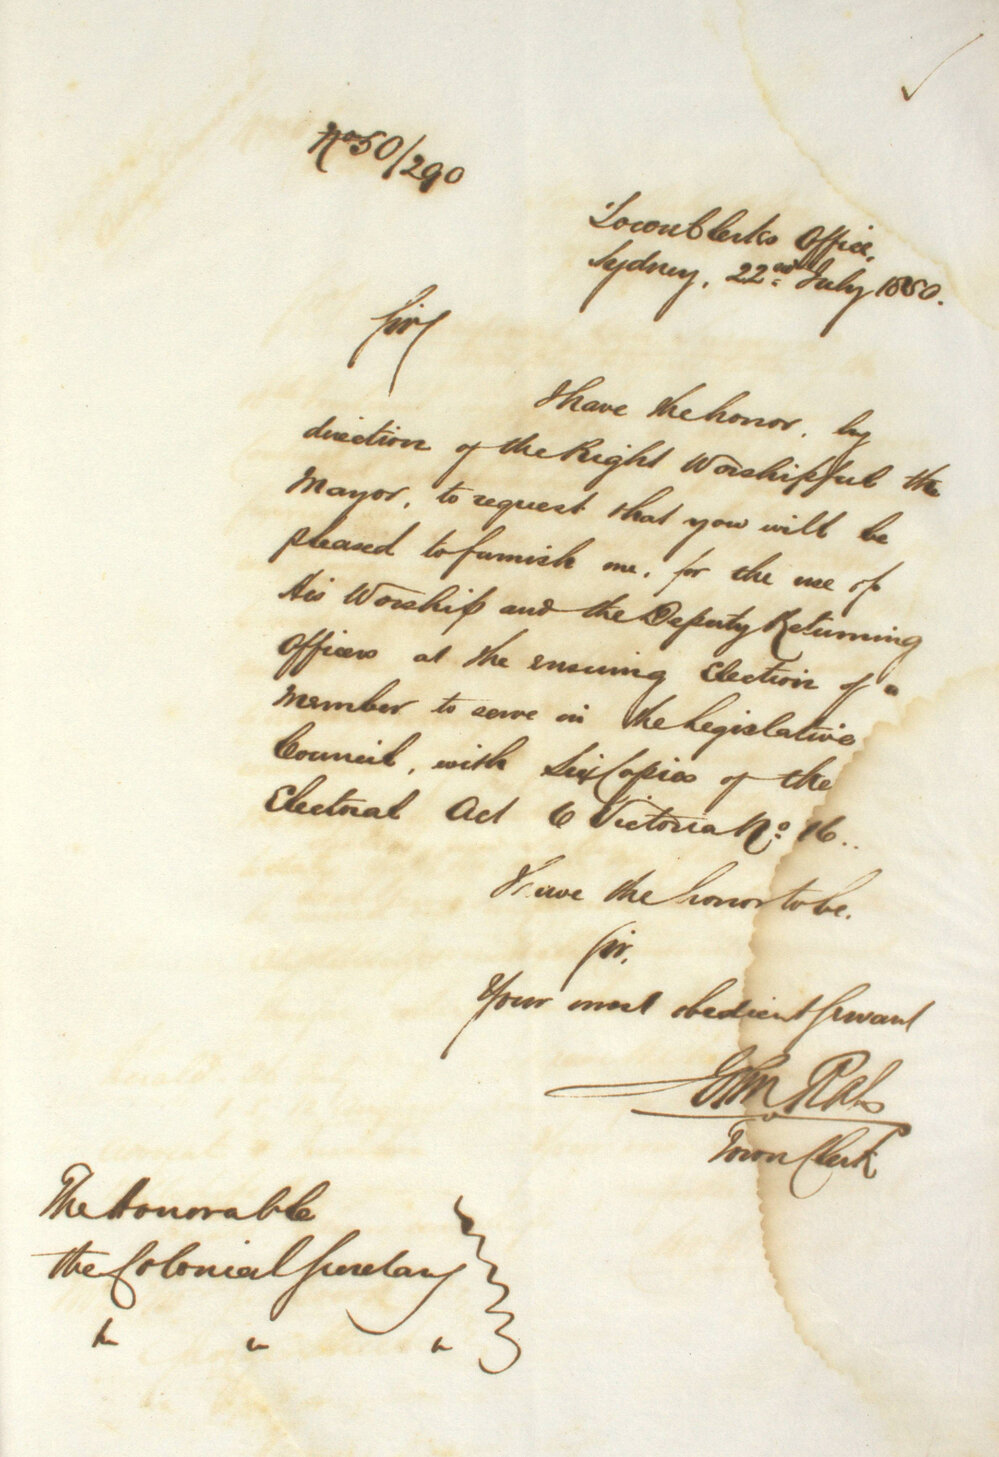 No 50/290
Town Clerks Office,
Sydney, 22nd July 1850.
Sir,
I have the honor, by
direction of the Right Worshipful the
Mayor, to request that you will be
pleased to furnish me, for the use of
His Worship and the Deputy Returning
Officers at the ensuing Election of a
Member to serve in the Legislative
Council, with Six Copies of the
Electoral Act 6 Victoria No. 16..
I have the honor to be,
Sir,
Your most obedient Servant
John Rae
Town Clerk
The Honorable
the Colonial Secretary
" " "